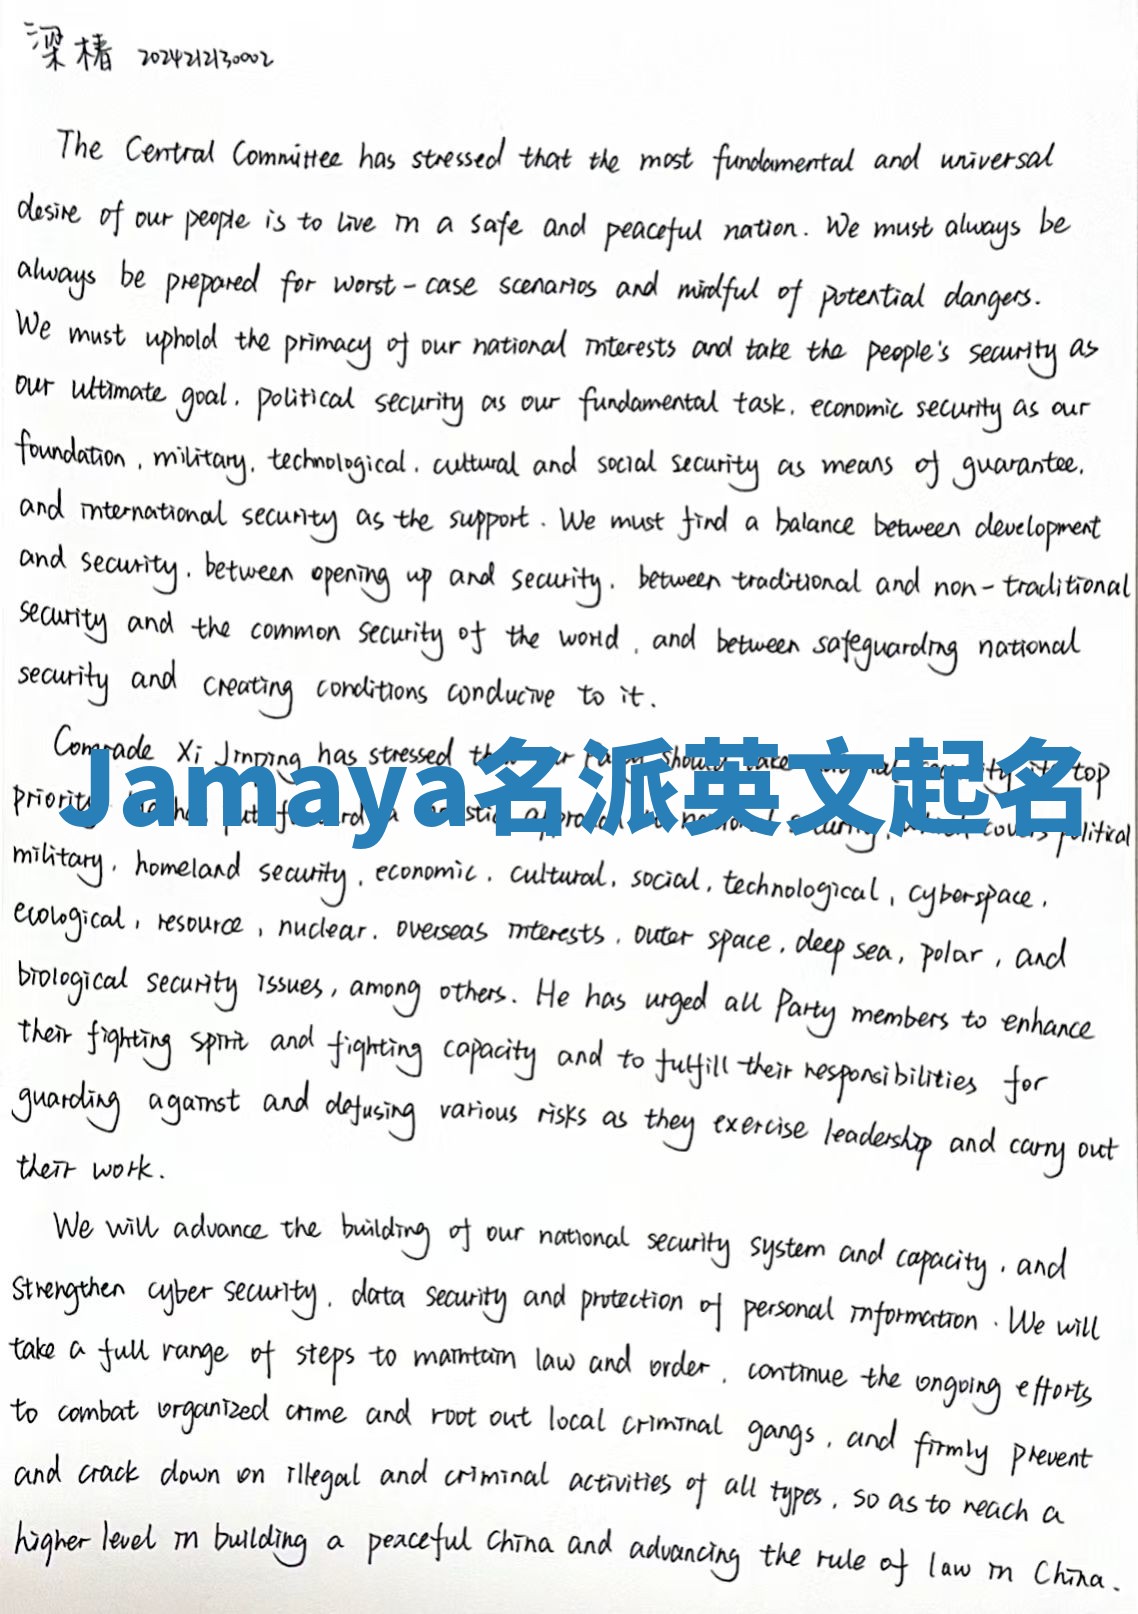 梁椿 2024212130002
The Central Committee has stressed that the most fundamental and universal
desire of our people is to live in a safe and peaceful nation. We must always be
always be prepared for worst-case scenarios and mindful of potential dangers.
We must uphold the primacy of our national interests and take the people's security as
our ultimate goal, political security as our fundamental task, economic security as our
foundation, military, technological, cultural and social security as means of guarantee,
and international security as the support. We must find a balance between development
and security, between opening up and security, between traditional and non-traditional
security and the common security of the world, and between safeguarding national
security and creating conditions conducive to it.
Comrade Xi Jinping has stressed should take top
Jamaya名派英文起名
priority put forward a approach national security, which covers political
military, homeland security, economic, cultural, social, technological, cyberspace,
ecological, resource, nuclear, overseas interests, outer space, deep sea, polar, and
biological security issues, among others. He has urged all Party members to enhance
their fighting spirit and fighting capacity and to fulfill their responsibilities for
guarding against and defusing various risks as they exercise leadership and carry out
their work.
We will advance the building of our national security system and capacity, and
strengthen cyber security, data security and protection of personal information. We will
take a full range of steps to maintain law and order, continue the ongoing efforts
to combat organized crime and root out local criminal gangs, and firmly prevent
and crack down on illegal and criminal activities of all types, so as to reach a
higher level in building a peaceful China and advancing the rule of law in China.